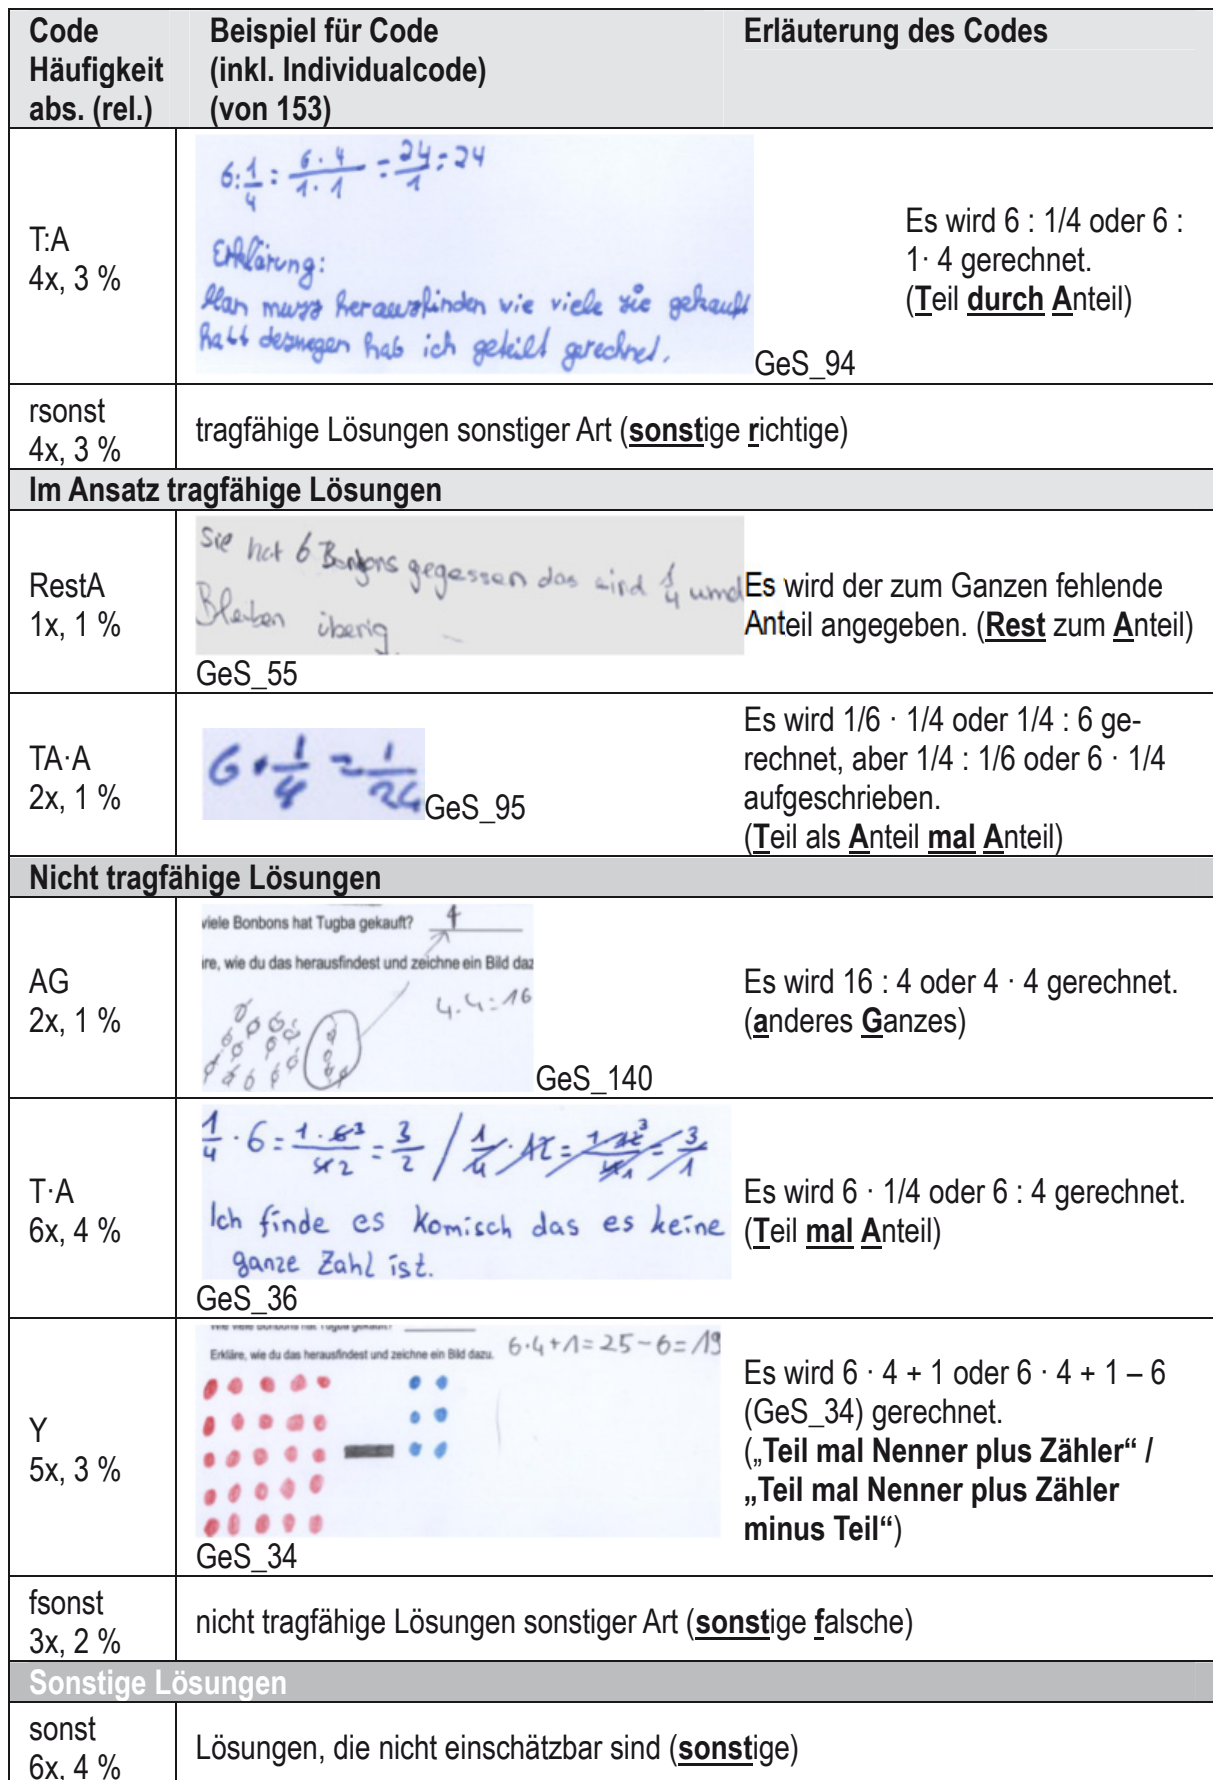 Code
Häufigkeit
abs. (rel.)
Beispiel für Code
(inkl. Individualcode)
(von 153)
Erläuterung des Codes
T:A
4x, 3 %
6:1/4 = 6·4/1·1 = 24/1 = 24
Erklärung:
Man muss herausfinden vie viele sie gekauft
hatt deswegen hab ich geteilt gerechnet.
GeS_94
Es wird 6 : 1/4 oder 6 :
1· 4 gerechnet.
(Teil durch Anteil)
rsonst
4x, 3 %
tragfähige Lösungen sonstiger Art (sonstige richtige)
Im Ansatz tragfähige Lösungen
RestA
1x, 1 %
Sie hat 6 Bonbons gegessen das sind 1/4 und
Bleiben überig
GeS_55
Es wird der zum Ganzen fehlende
Anteil angegeben. (Rest zum Anteil)
TA·A
2x, 1 %
6·1/4 = 1/24
GeS_95
Es wird 1/6 · 1/4 oder 1/4 : 6 ge-
rechnet, aber 1/4 : 1/6 oder 6 · 1/4
aufgeschrieben.
(Teil als Anteil mal Anteil)
Nicht tragfähige Lösungen
AG
2x, 1 %
viele Bonbons hat Tugba gekauft? 4
re, wie du das herausfindest und zeichne ein Bild daz
4·4=16
GeS_140
Es wird 16 : 4 oder 4 · 4 gerechnet.
(anderes Ganzes)
T·A
6x, 4 %
1/4 · 6 = 1·6³/4 2 = 3/2 / 1/4 · 12 = 1·12³/4 1 = 3/1
Ich finde es komisch das es keine
ganze Zahl ist.
GeS_36
Es wird 6 · 1/4 oder 6 : 4 gerechnet.
(Teil mal Anteil)
Y
5x, 3 %
Wie viele Bonbons hat Tugba gekauft?
Erkläre, wie du das herausfindest und zeichne ein Bild dazu.
6·4+1=25-6=19
GeS_34
Es wird 6 · 4 + 1 oder 6 · 4 + 1 – 6
(GeS_34) gerechnet.
(„Teil mal Nenner plus Zähler“ /
„Teil mal Nenner plus Zähler
minus Teil“)
fsonst
3x, 2 %
nicht tragfähige Lösungen sonstiger Art (sonstige falsche)
Sonstige Lösungen
sonst
6x, 4 %
Lösungen, die nicht einschätzbar sind (sonstige)